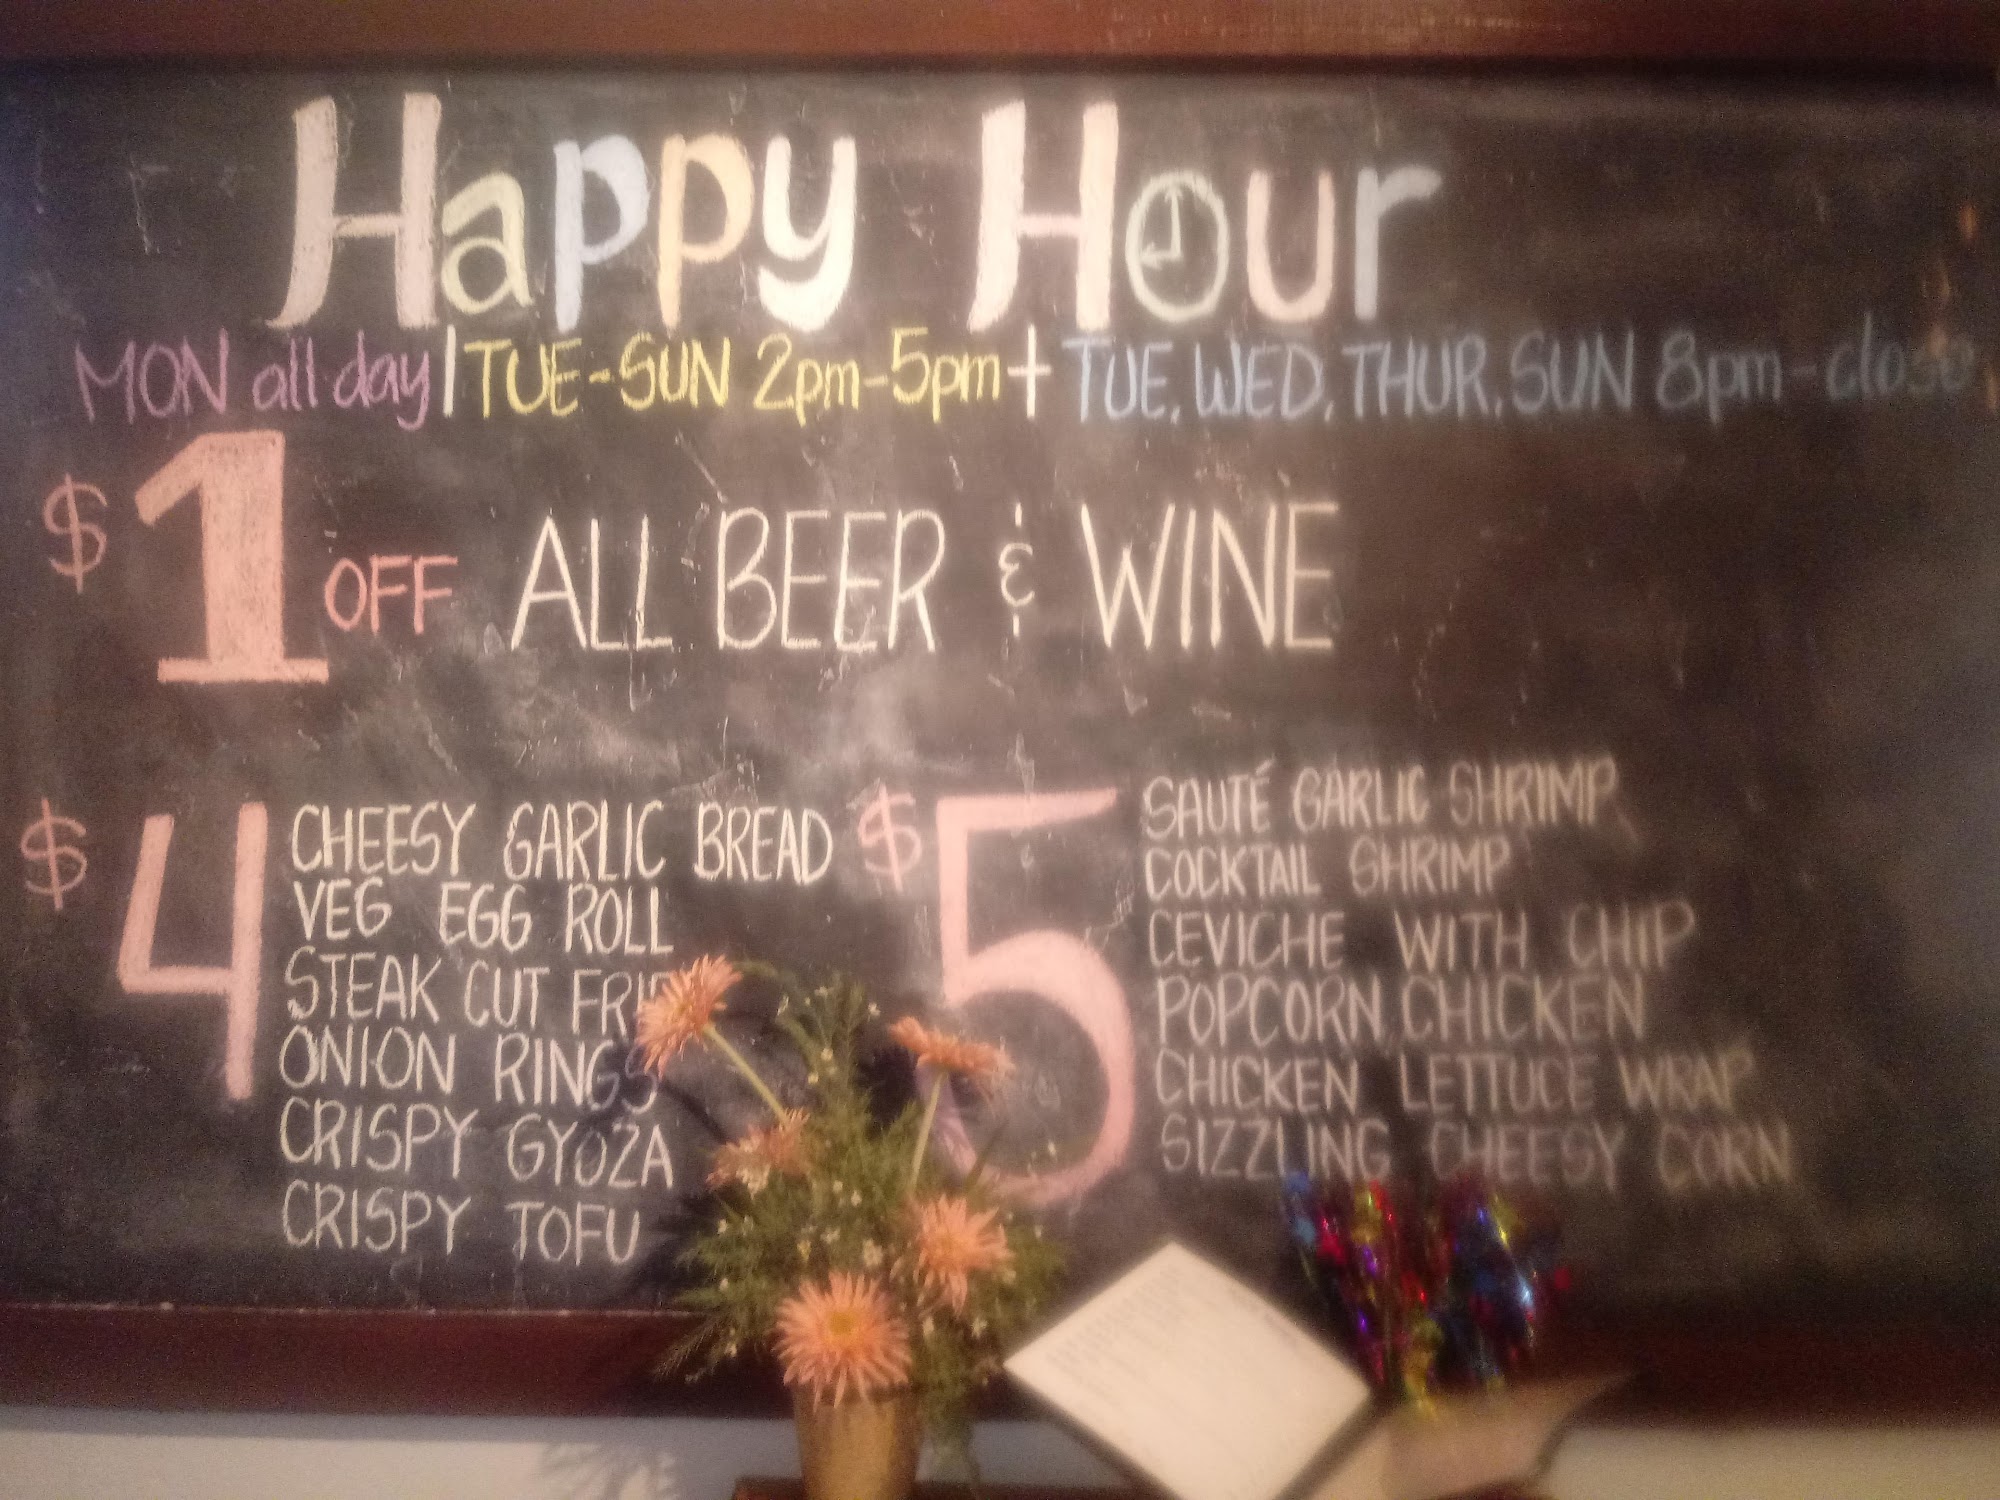 Happy Hour
MON all day | TUE-SUN 2pm-5pm + TUE, WED, THUR, SUN 8pm-close
$1 OFF ALL BEER & WINE
$4
CHEESY GARLIC BREAD
VEG EGG ROLL
STEAK CUT FRIE
ONION RINGS
CRISPY GYOZA
CRISPY TOFU
$5
SAUTÉ GARLIC SHRIMP
COCKTAIL SHRIMP
CEVICHE WITH CHIP
POPCORN CHICKEN
CHICKEN LETTUCE WRAP
SIZZLING CHEESY CORN